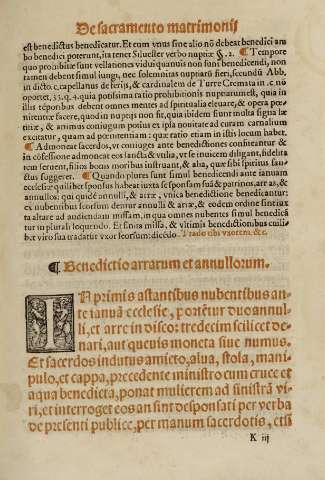 De sacramento matrimonij
est benedictus benedicatur. Et cum vnus sine alio nõ debeat benedici am
bo benedici poterunt, ita tenet Siluester verbo nuptię §.2. ¶ Tempore
quo prohibitę sunt vellationes vidui quamuis non sunt benedicendi, non
tamen debent simul iungi, nec solemnitas nuptiarũ fieri, secundũ Abb.
in dicto.c.capellanus de ferijs, & cardinalem de Turre Cremata in.c.nõ
oportet, 33.q.4. quia potissima ratio prohibitionis nuptiarum est, quia in
illis tẽporibus debent omnes mentes ad spiritualia eleuare, & opera pœ-
nitentiæ facere, quod in nuptijs non fit, quia ibidem sunt multa signa læ
titiæ, & animus coniugum potius ex ipsa nouitate ad curam carnalium
excitatur, quam ad pœnitentiam: quæ ratio etiam in istis locum habet.
¶ Admoneat sacerdos, vt coniuges ante benedictiones confiteantur &
in cõfessione admoneat eos sanctæ vitæ, vt se inuicem diligant, fidelita
tem seruent, filios bonis moribus instruant, & alia, quæ sibi spiritus san-
ctus suggeret. ¶ Quando plures sunt simul benedicendi ante ianuam
ecclesiæ quilibet sponsus habeat iuxta se sponsam suã & patrinos, arras, &
annulos: qui quidẽ annuli, & arræ, vnica benedictione benedicantur:
ex nubentibus seorsum dentur annulli & arræ, & eodem ordine sint iux
ta altare ad audiendam missam, in qua omnes nubentes simul benedicã
tur in plurali loquendo. Et finita missa, & vltimis benedictionibus cuili-
bet viro sua tradatur vxor seorsum: dicẽdo. Trado tibi vxorem. &c.
¶ Benedictio arrarum et annullorum.
IN primis astantibus nubentibus an-
te ianuã ecclesie, portẽtur duo annul-
li, et arre in disco: tredecim scilicet de-
narij, aut cueuis moneta siue numus.
Et sacerdos indutus amicto, alua, stola, mani-
pulo, et cappa, precedente ministro cum cruce et
aqua benedicta, ponat mulierem ad sinistrã vi-
ri, et interroget eos an sint desponsati per verba
de presenti publice, per manum sacerdotis, etsi
K iij